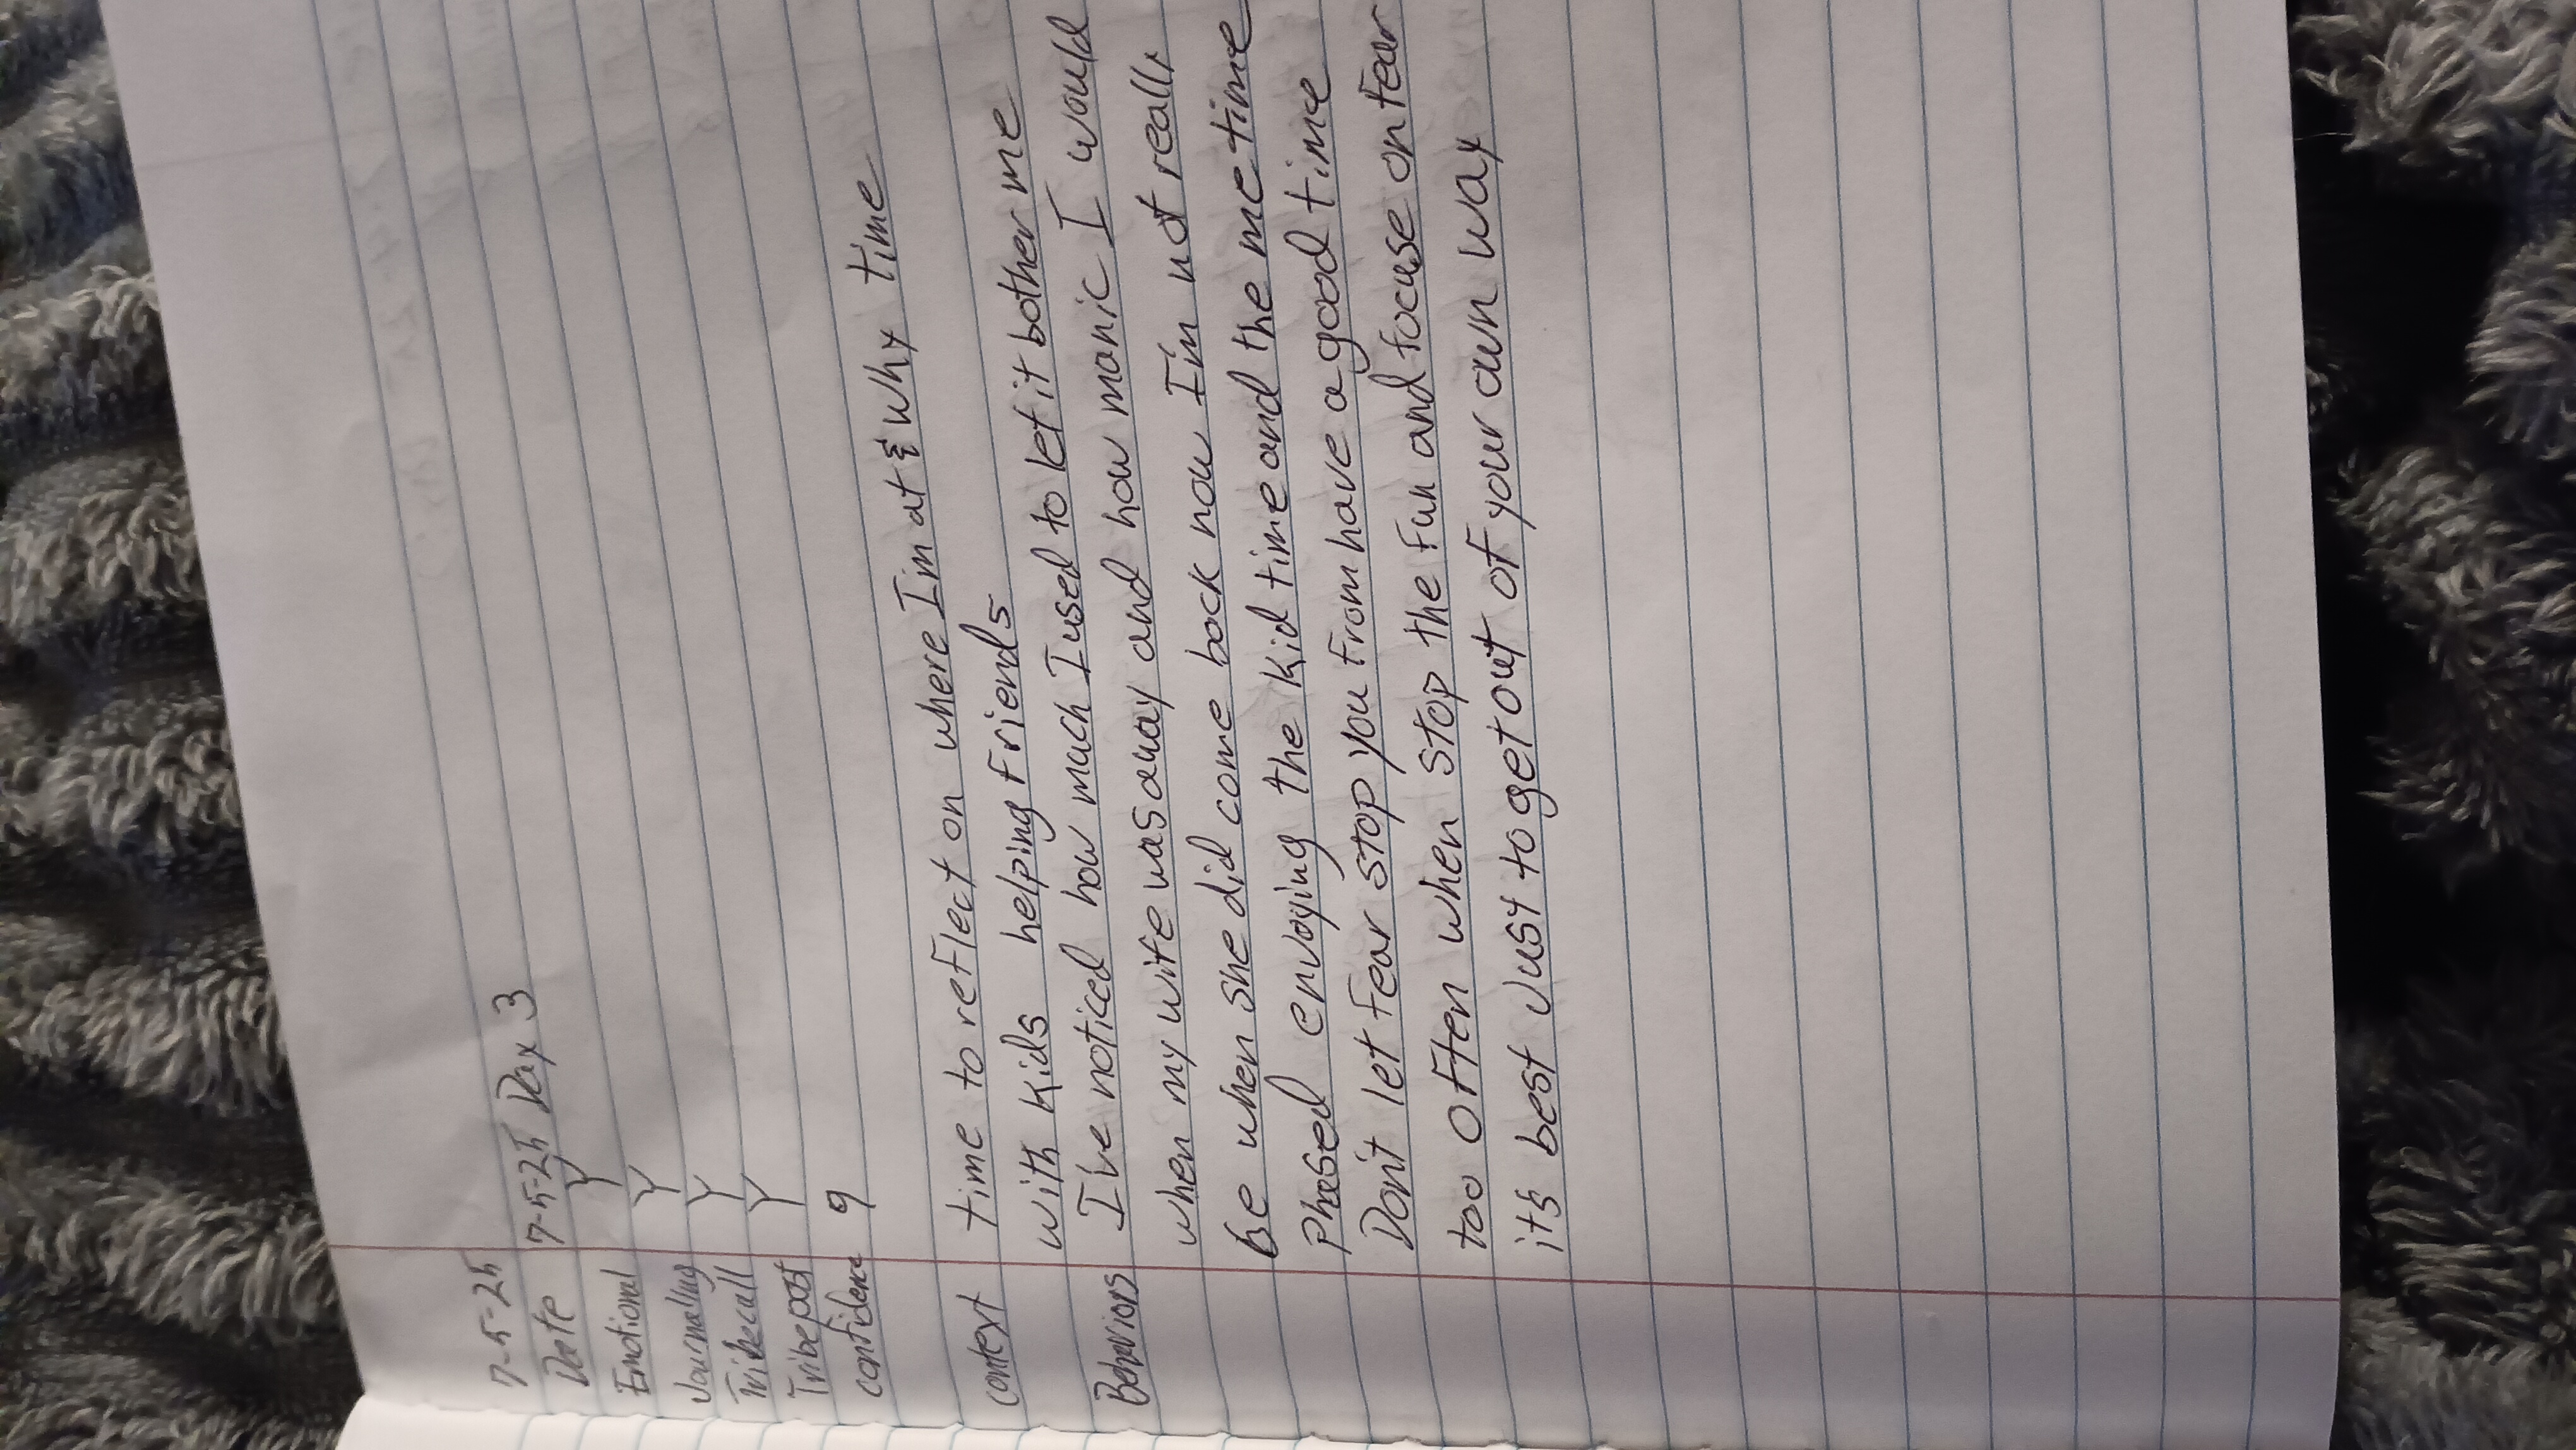 7-5-25
Date 7-5-25 Day 3
Emotional Y
Journaling Y
Tribecall Y
Tribepost Y
confidence 9
context time to reflect on where I'm at & why time
with kids helping Friends
Behaviors I've noticed how much I used to let it bother me
when my wife was away and how manic I would
be when she did come back now I'm not really
Phased envoying the kid time and the me time
Don't let Fear stop you From have a good time
too oFten when stop the Fun and focuse on Fear
it's best Just to get out oF your own way